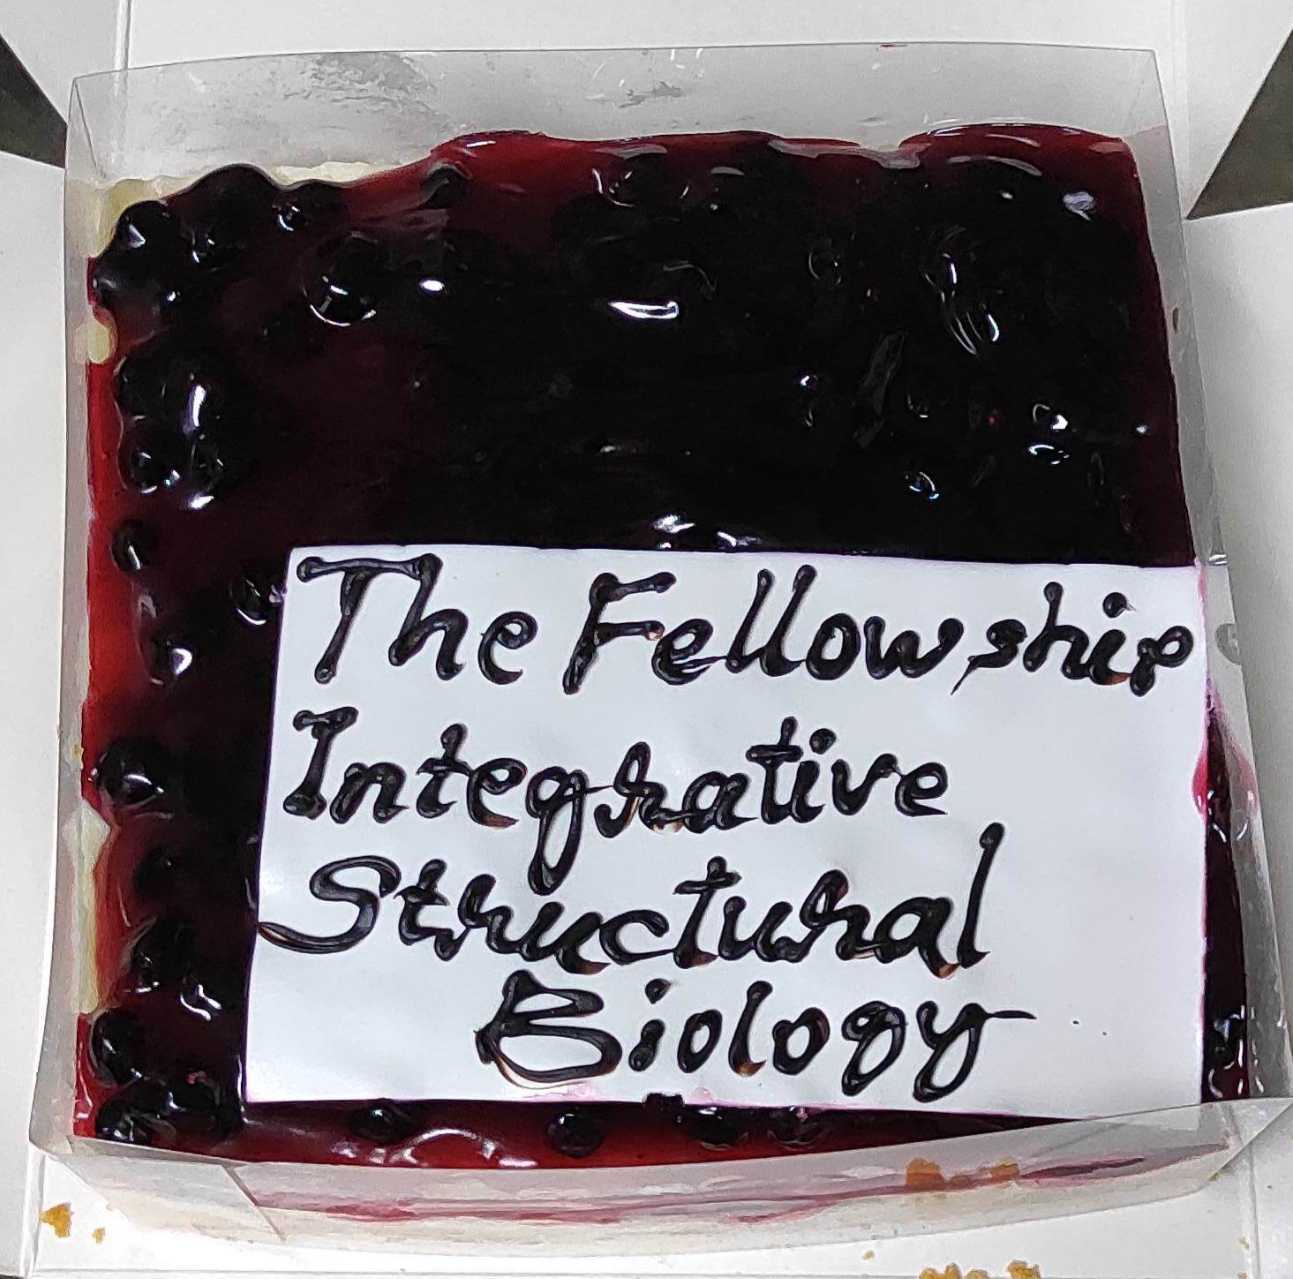 The Fellowship
Integrative
Structural
Biology